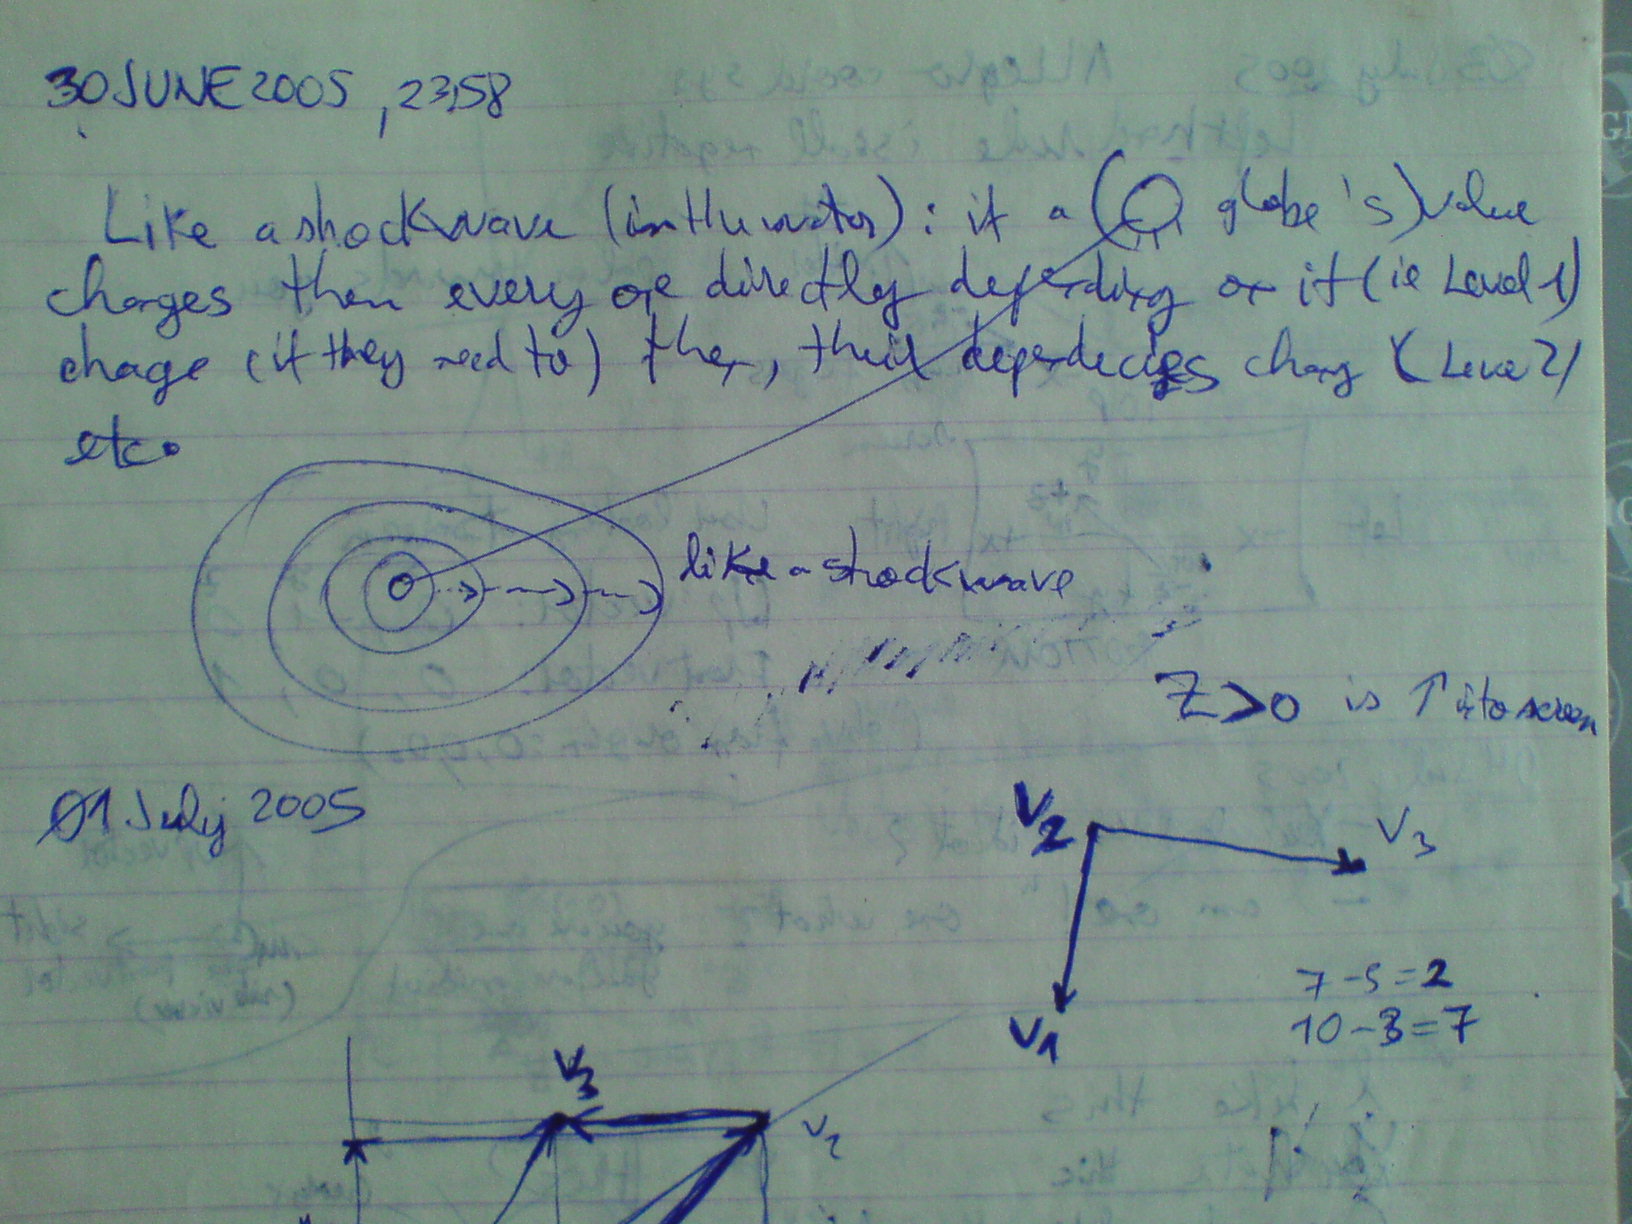 30 JUNE 2005, 23:58
Like a shockwave (in the water): if a ( globe's) value
changes then every one directly depending on it (ie Level 1)
change (if they need to) then, their dependecies chang (Level 2)
etc.
like a shockwave
Z>0 is ↑ into screen
01 July 2005
V2
V3
V1
7-5=2
10-3=7
V3
V2